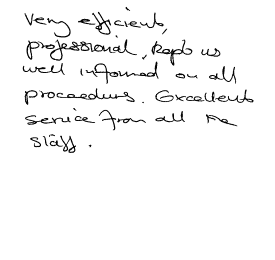 Very efficient,
professional, kept us
well informed on all
proceedures. Excellent
service from all the
staff.